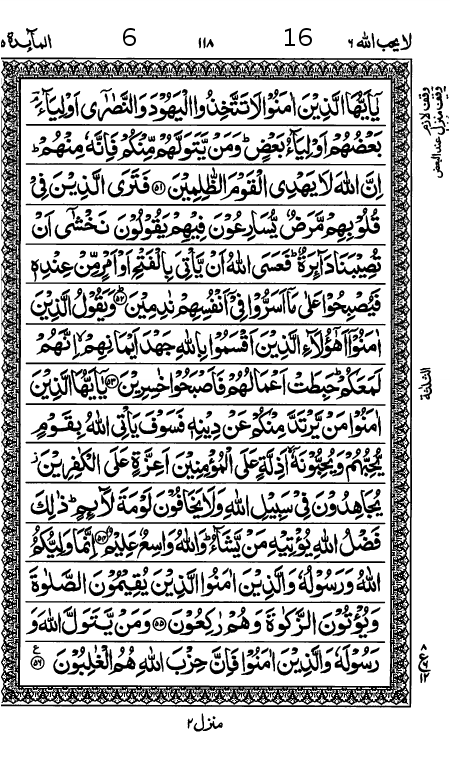 لا يحب الله ٦ 16 ١١٨ 6 المآئدة ٥
يٰۤاَيُّهَا الَّذِيْنَ اٰمَنُوْا لَا تَتَّخِذُوا الْيَهُوْدَ وَالنَّصٰرٰۤى اَوْلِيَآءَ ؔۘ
بَعْضُهُمْ اَوْلِيَآءُ بَعْضٍ ؕ وَمَنْ يَّتَوَلَّهُمْ مِّنْكُمْ فَاِنَّهٗ مِنْهُمْ ؕ
اِنَّ اللّٰهَ لَا يَهْدِى الْقَوْمَ الظّٰلِمِيْنَ ﴿۵۱﴾ فَتَرَى الَّذِيْنَ فِىْ
قُلُوْبِهِمْ مَّرَضٌ يُّسَارِعُوْنَ فِيْهِمْ يَقُوْلُوْنَ نَخْشٰٓى اَنْ
تُصِيْبَنَا دَآئِرَةٌ ؕ فَعَسَى اللّٰهُ اَنْ يَّاْتِىَ بِالْفَتْحِ اَوْ اَمْرٍ مِّنْ عِنْدِهٖ
فَيُصْبِحُوْا عَلٰى مَاۤ اَسَرُّوْا فِىْۤ اَنْفُسِهِمْ نٰدِمِيْنَ ؕ ﴿۵۲﴾ وَيَقُوْلُ الَّذِيْنَ
اٰمَنُوْۤا اَهٰٓؤُلَآءِ الَّذِيْنَ اَقْسَمُوْا بِاللّٰهِ جَهْدَ اَيْمَانِهِمْ ۙ اِنَّهُمْ
لَمَعَكُمْ ؕ حَبِطَتْ اَعْمَالُهُمْ فَاَصْبَحُوْا خٰسِرِيْنَ ﴿۵۳﴾ يٰۤاَيُّهَا الَّذِيْنَ
اٰمَنُوْا مَنْ يَّرْتَدَّ مِنْكُمْ عَنْ دِيْنِهٖ فَسَوْفَ يَاْتِى اللّٰهُ بِقَوْمٍ
يُّحِبُّهُمْ وَيُحِبُّوْنَهٗۤ ۙ اَذِلَّةٍ عَلَى الْمُؤْمِنِيْنَ اَعِزَّةٍ عَلَى الْكٰفِرِيْنَ ؗ
يُجَاهِدُوْنَ فِىْ سَبِيْلِ اللّٰهِ وَلَا يَخَافُوْنَ لَوْمَةَ لَآئِمٍ ؕ ذٰلِكَ
فَضْلُ اللّٰهِ يُؤْتِيْهِ مَنْ يَّشَآءُ ؕ وَاللّٰهُ وَاسِعٌ عَلِيْمٌ ﴿۵۴﴾ اِنَّمَا وَلِيُّكُمُ
اللّٰهُ وَرَسُوْلُهٗ وَالَّذِيْنَ اٰمَنُوا الَّذِيْنَ يُقِيْمُوْنَ الصَّلٰوةَ
وَيُؤْتُوْنَ الزَّكٰوةَ وَهُمْ رٰكِعُوْنَ ﴿۵۵﴾ وَمَنْ يَّتَوَلَّ اللّٰهَ وَ
رَسُوْلَهٗ وَالَّذِيْنَ اٰمَنُوْا فَاِنَّ حِزْبَ اللّٰهِ هُمُ الْغٰلِبُوْنَ ﴿۵۶﴾ ع
وقف لازم
وقف منزل
عند البعض
الثلثة
٨
ع
١٢
منزل ٢